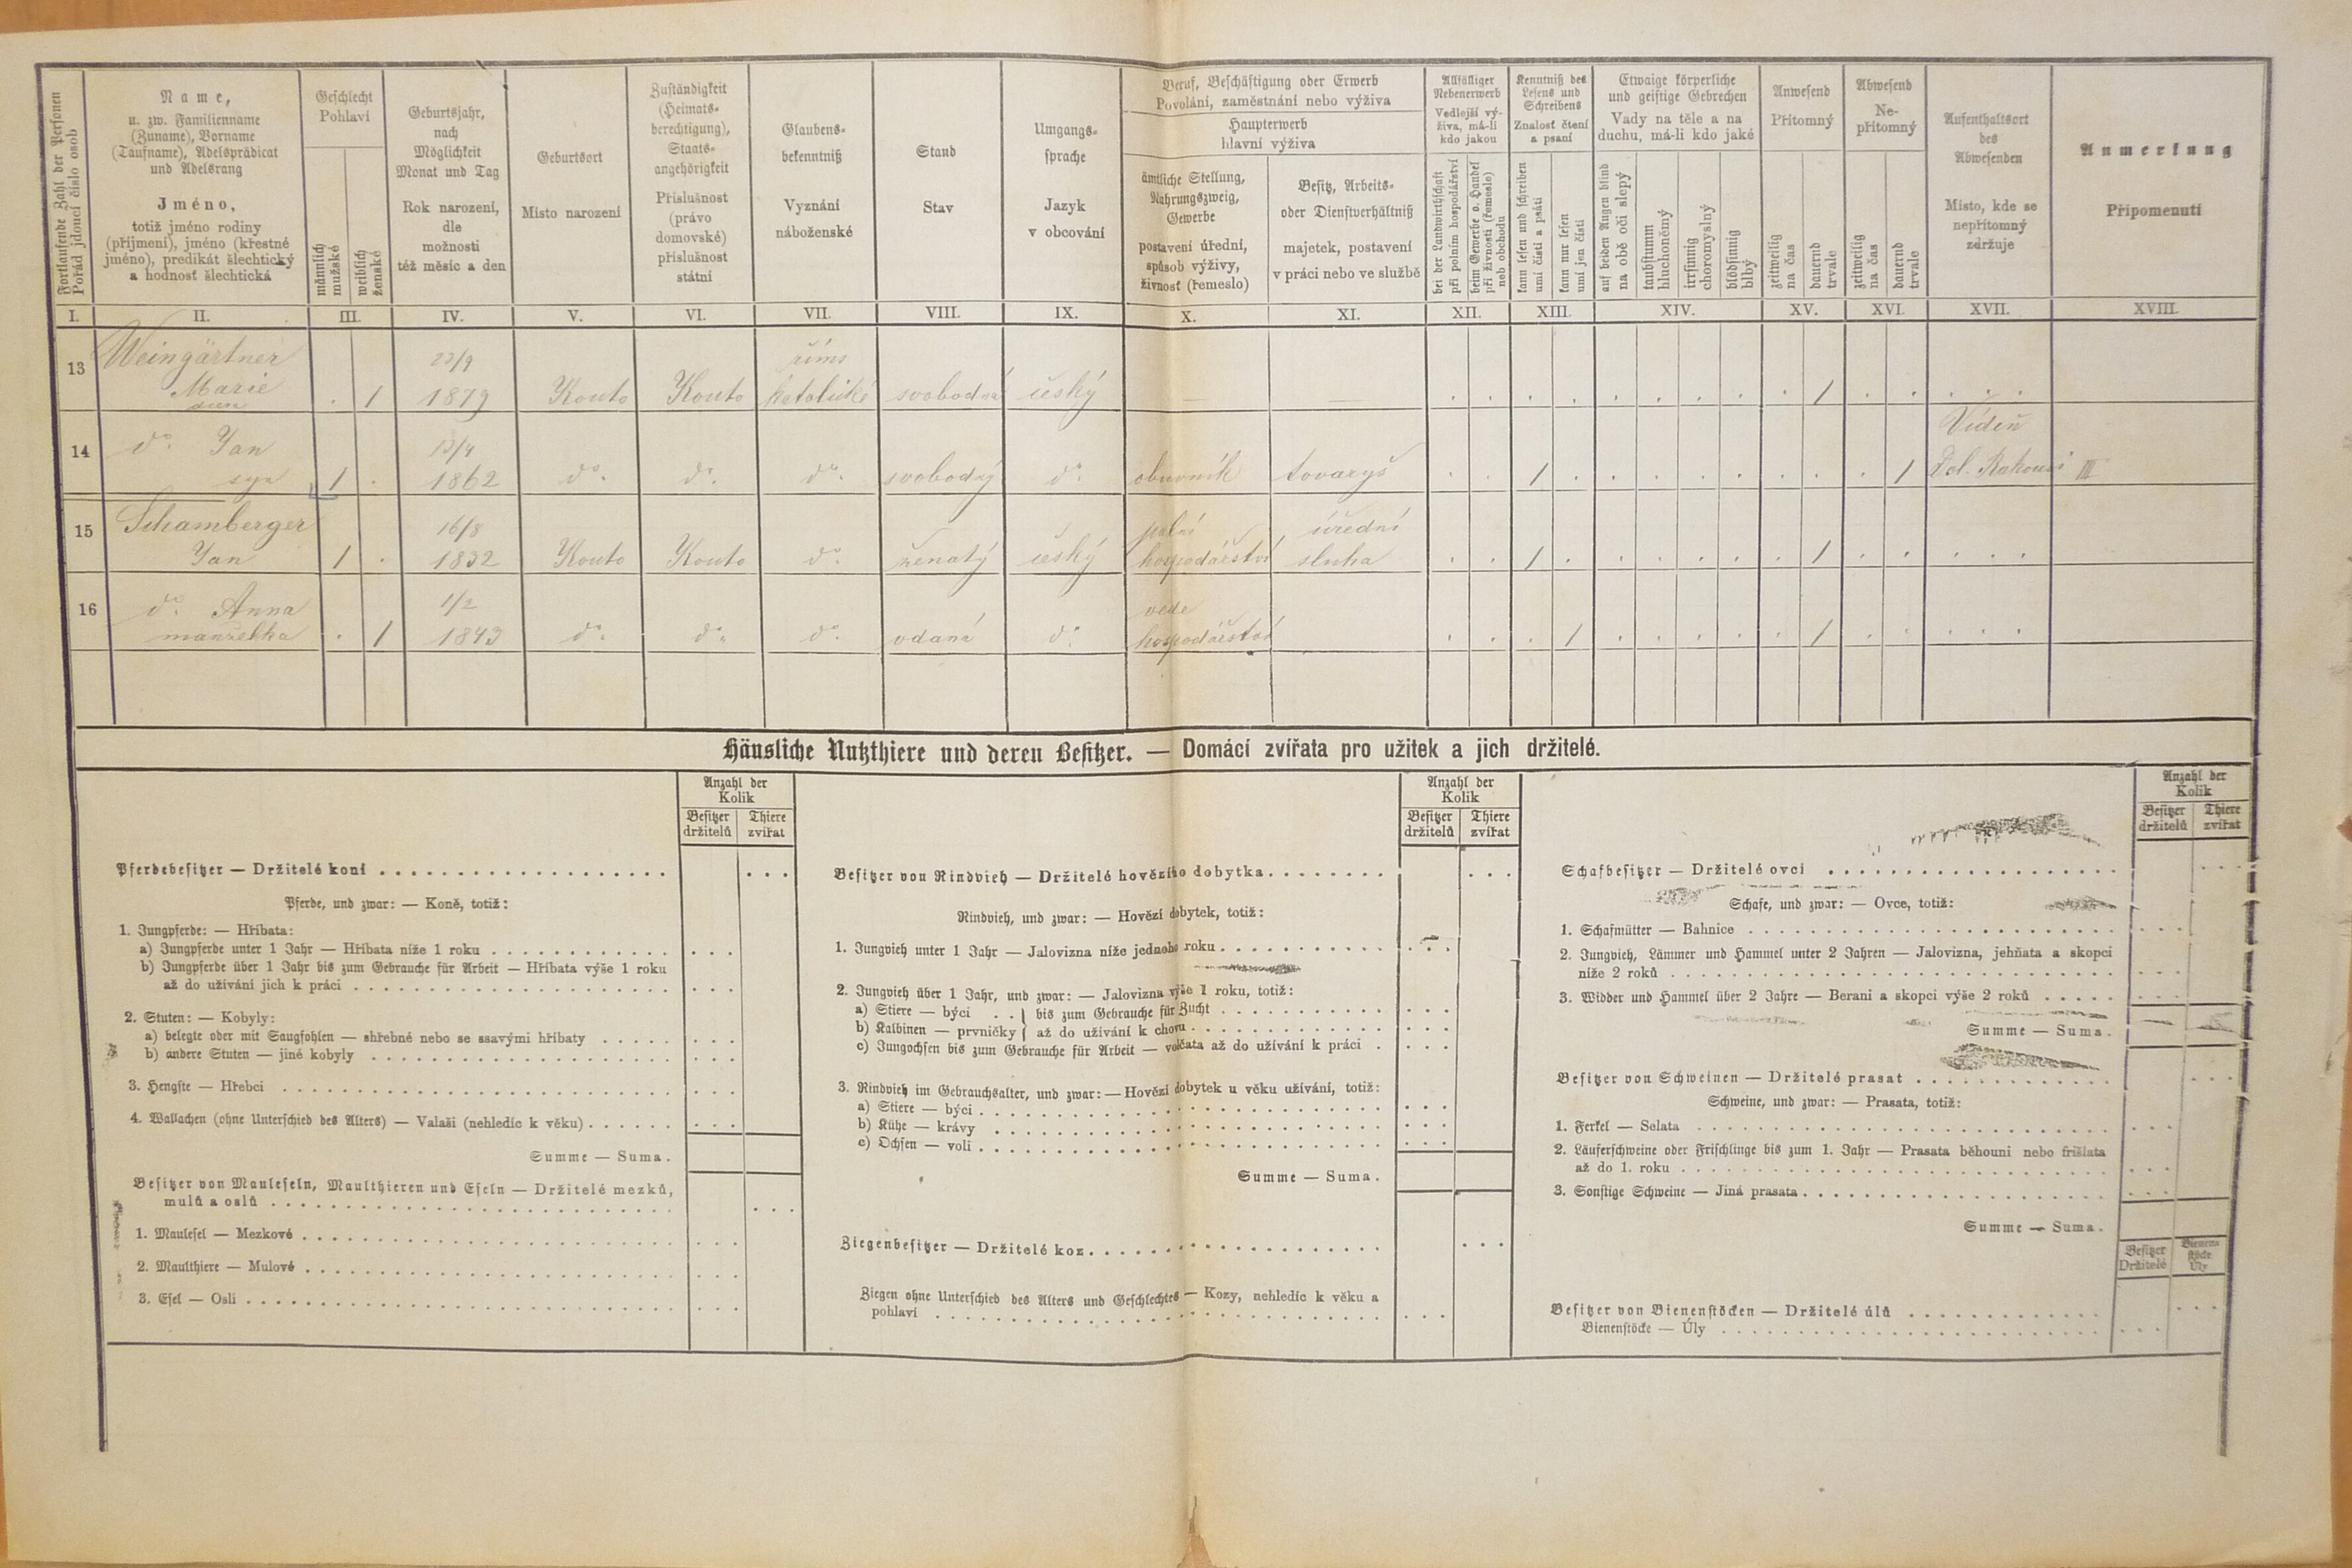 Fortlaufende Zahl der Personen
Pořád jdoucí číslo osob
Name,
u. zw. Familienname
(Zuname), Vorname
(Taufname), Adelsprädicat
und Adelsrang
Jméno,
totiž jméno rodiny
(příjmení), jméno (křestné
jméno), predikát šlechtický
a hodnosť šlechtická
Geschlecht
Pohlaví
männlich
mužské
weiblich
ženské
Geburtsjahr,
nach
Möglichkeit
Monat und Tag
Rok narození,
dle
možnosti
též měsíc a den
Geburtsort
Místo narození
Zuständigkeit
(Heimats-
berechtigung),
Staats-
angehörigkeit
Příslušnost
(právo
domovské)
příslušnost
státní
Glaubens-
bekenntniß
Vyznání
náboženské
Stand
Stav
Umgangs-
sprache
Jazyk
v obcování
Beruf, Beschäftigung oder Erwerb
Povolání, zaměstnání nebo výživa
Haupterwerb
hlavní výživa
ämtliche Stellung,
Nahrungszweig,
Gewerbe
postavení úřední,
spůsob výživy,
živnosť (řemeslo)
Besitz, Arbeits-
oder Dienstverhältniß
majetek, postavení
v práci nebo ve službě
Allfälliger
Nebenerwerb
Vedlejší vý-
živa, má-li
kdo jakou
bei der Landwirthschaft
při polním hospodářství
beim Gewerbe o. Handel
při živnosti (řemesle)
neb obchodu
Kenntniß des
Lesens und
Schreibens
Znalosť čtení
a psaní
kann lesen und schreiben
umí čísti a psáti
kann nur lesen
umí jen čísti
Etwaige körperliche
und geistige Gebrechen
Vady na těle a na
duchu, má-li kdo jaké
auf beiden Augen blind
na obě oči slepý
taubstumm
hluchoněmý
irrsinnig
choromyslný
blödsinnig
blbý
Anwesend
Přítomný
zeitweilig
na čas
dauernd
trvale
Abwesend
Ne-
přítomný
zeitweilig
na čas
dauernd
trvale
Aufenthaltsort
des
Abwesenden
Místo, kde se
nepřítomný
zdržuje
Anmerkung
Připomenutí
I. II. III. IV. V. VI. VII. VIII. IX. X. XI. XII. XIII. XIV. XV. XVI. XVII. XVIII.
Weingärtner 23/9 řims
13 Marie . 1 1879 Kouto Kouto katolické svobodná český — — . . . . . . . . . 1 . . . . .
dcera
dº Jan 13/4 Vídeň
14 syn 1 . 1862 dº dº dº svobodný dº obuvník tovaryš . . 1 . . . . . . . . 1 Dol. Rakousí III
Schamberger 16/8 polní úřední
15 Jan 1 . 1832 Kouto Kouto dº ženatý český hospodářství sluha . . 1 . . . . . . 1 . . . . .
dº Anna 1/2 vede
16 manželka . 1 1843 dº dº dº vdaná dº hospodářství . . . 1 . . . . . 1 . . . . .
Häusliche Nutzthiere und deren Besitzer. — Domácí zvířata pro užitek a jich držitelé.
Anzahl der
Kolik
Besitzer
držitelů
Thiere
zvířat
Pferdebesitzer — Držitelé koní
Pferde, und zwar: — Koně, totiž:
1. Jungpferde: — Hříbata:
a) Jungpferde unter 1 Jahr — Hříbata níže 1 roku
b) Jungpferde über 1 Jahr bis zum Gebrauche für Arbeit — Hříbata výše 1 roku
až do užívání jich k práci
2. Stuten: — Kobyly:
a) belegte oder mit Saugfohlen — shřebné nebo se ssavými hříbaty
b) andere Stuten — jiné kobyly
3. Hengste — Hřebci
4. Wallachen (ohne Unterschied des Alters) — Valaši (nehledíc k věku)
Summe — Suma.
Besitzer von Mauleseln, Maulthieren und Eseln — Držitelé mezků,
mulů a oslů
1. Maulesel — Mezkové
2. Maulthiere — Mulové
3. Esel — Osli
Anzahl der
Kolik
Besitzer
držitelů
Thiere
zvířat
Besitzer von Rindvieh — Držitelé hovězího dobytka
Rindvieh, und zwar: — Hovězí dobytek, totiž:
1. Jungvieh unter 1 Jahr — Jalovizna níže jednoho roku
2. Jungvieh über 1 Jahr, und zwar: — Jalovizna výše 1 roku, totiž:
a) Stiere — býci . . } bis zum Gebrauche für Zucht
b) Kalbinen — prvničky { až do užívání k chovu
c) Jungochsen bis zum Gebrauche für Arbeit — volčata až do užívání k práci
3. Rindvieh im Gebrauchsalter, und zwar: — Hovězí dobytek u věku užívání, totiž:
a) Stiere — býci
b) Kühe — krávy
c) Ochsen — voli
Summe — Suma.
Ziegenbesitzer — Držitelé koz
Ziegen ohne Unterschied des Alters und Geschlechtes — Kozy, nehledíc k věku a
pohlaví
Anzahl der
Kolik
Besitzer
držitelů
Thiere
zvířat
Schafbesitzer — Držitelé ovcí
Schafe, und zwar: — Ovce, totiž:
1. Schafmütter — Bahnice
2. Jungvieh, Lämmer und Hammel unter 2 Jahren — Jalovizna, jehňata a skopci
níže 2 roků
3. Widder und Hammel über 2 Jahre — Berani a skopci výše 2 roků
Summe — Suma.
Besitzer von Schweinen — Držitelé prasat
Schweine, und zwar: — Prasata, totiž:
1. Ferkel — Selata
2. Läuferschweine oder Frischlinge bis zum 1. Jahr — Prasata běhouni nebo frišlata
až do 1. roku
3. Sonstige Schweine — Jiná prasata
Summe — Suma.
Besitzer
Držitelé
Bienen-
stöcke
Úly
Besitzer von Bienenstöcken — Držitelé úlů
Bienenstöcke — Úly